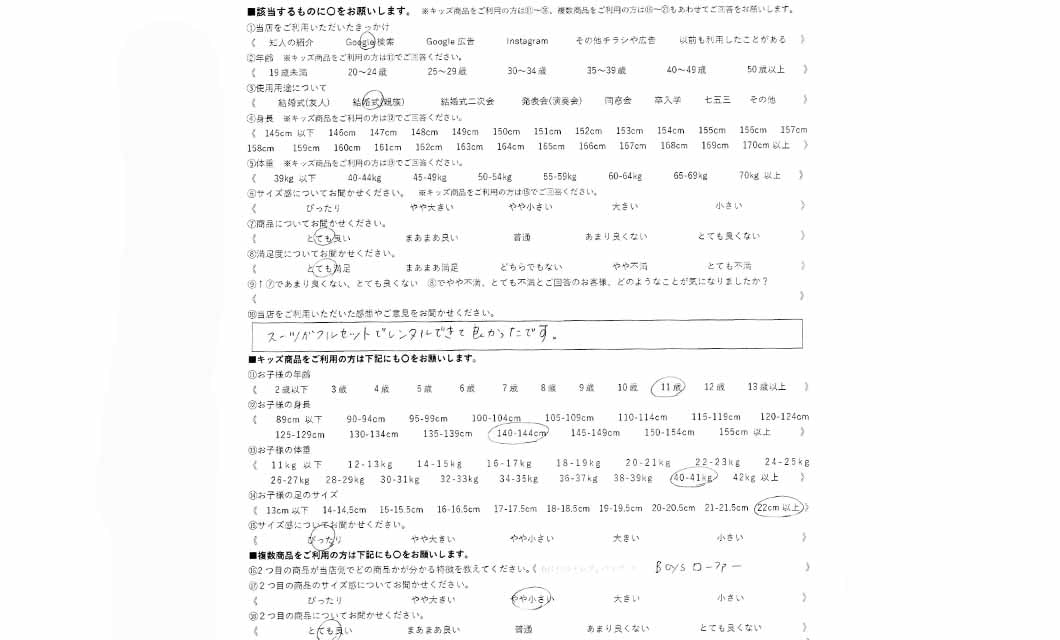 ■該当するものに〇をお願いします。 ※キッズ商品をご利用の方は⑪～⑮、複数商品をご利用の方は⑯～㉑もあわせてご回答をお願いします。
①当店をご利用いただいたきっかけ
《 知人の紹介 Google検索 Google広告 Instagram その他チラシや広告 以前も利用したことがある 》
②年齢 ※キッズ商品をご利用の方は⑪でご回答ください。
《 19歳未満 20～24歳 25～29歳 30～34歳 35～39歳 40～49歳 50歳以上 》
③使用用途について
《 結婚式(友人) 結婚式(親族) 結婚式二次会 発表会(演奏会) 同窓会 卒入学 七五三 その他 》
④身長 ※キッズ商品をご利用の方は⑫でご回答ください。
《 145cm 以下 146cm 147cm 148cm 149cm 150cm 151cm 152cm 153cm 154cm 155cm 156cm 157cm
158cm 159cm 160cm 161cm 162cm 163cm 164cm 165cm 166cm 167cm 168cm 169cm 170cm以上 》
⑤体重 ※キッズ商品をご利用の方は⑬でご回答ください。
《 39kg 以下 40-44kg 45-49kg 50-54kg 55-59kg 60-64kg 65-69kg 70kg 以上 》
⑥サイズ感についてお聞かせください。 ※キッズ商品をご利用の方は⑮でご回答ください。
《 ぴったり やや大きい やや小さい 大きい 小さい 》
⑦商品についてお聞かせください。
《 とても良い まあまあ良い 普通 あまり良くない とても良くない 》
⑧満足度についてお聞かせください。
《 とても満足 まあまあ満足 どちらでもない やや不満 とても不満 》
⑨↑⑦であまり良くない、とても良くない ⑧でやや不満、とても不満とご回答のお客様、どのようなことが気になりましたか？
《 》
⑩当店をご利用いただいた感想やご意見をお聞かせください。
スーツがフルセットでレンタルできて良かったです。
■キッズ商品をご利用の方は下記にも〇をお願いします。
⑪お子様の年齢
《 2歳以下 3歳 4歳 5歳 6歳 7歳 8歳 9歳 10歳 11歳 12歳 13歳以上 》
⑫お子様の身長
《 89cm 以下 90-94cm 95-99cm 100-104cm 105-109cm 110-114cm 115-119cm 120-124cm
125-129cm 130-134cm 135-139cm 140-144cm 145-149cm 150-154cm 155cm 以上 》
⑬お子様の体重
《 11kg 以下 12-13kg 14-15kg 16-17kg 18-19kg 20-21kg 22-23kg 24-25kg
26-27kg 28-29kg 30-31kg 32-33kg 34-35kg 36-37kg 38-39kg 40-41kg 42kg 以上 》
⑭お子様の足のサイズ
《 13cm以下 14-14.5cm 15-15.5cm 16-16.5cm 17-17.5cm 18-18.5cm 19-19.5cm 20-20.5cm 21-21.5cm 22cm以上 》
⑮サイズ感についてお聞かせください。
《 ぴったり やや大きい やや小さい 大きい 小さい 》
■複数商品をご利用の方は下記にも〇をお願いします。
⑯2つ目の商品が当店側でどの商品かが分かる特徴を教えてください。《 Boysローファー 》
⑰2つ目の商品のサイズ感についてお聞かせください。
《 ぴったり やや大きい やや小さい 大きい 小さい 》
⑱2つ目の商品についてお聞かせください。
《 とても良い まあまあ良い 普通 あまり良くない とても良くない 》